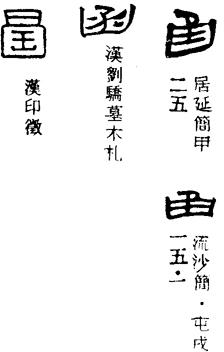 居延簡甲
二五
流沙簡·屯戍
一五·一
漢劉驕墓木札
漢印徵